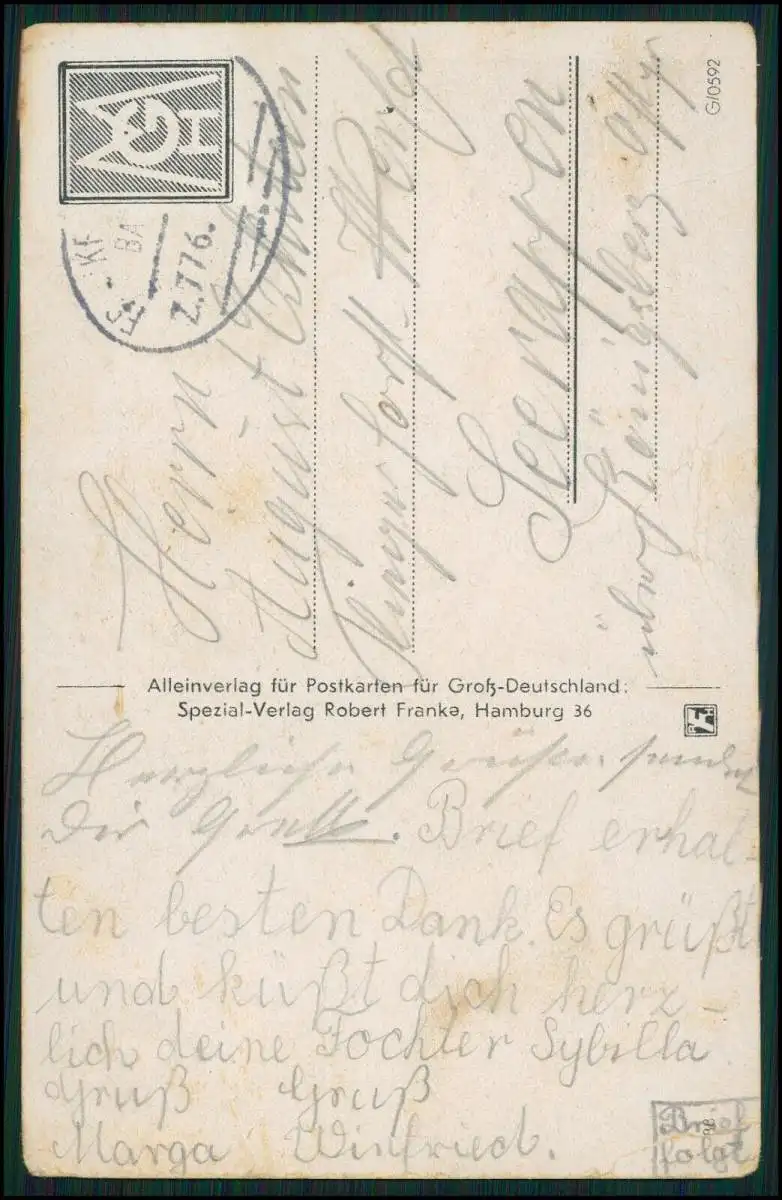 G/0592
7.7.16.
Herrn
August
Fliegerhorst
Seerappen
über Königsberg Ostpr
Alleinverlag für Postkarten für Groß-Deutschland:
Spezial-Verlag Robert Franke, Hamburg 36
Herzliche Grüße sendet
Dir Gretl. Brief erhal-
ten besten Dank. Es grüßt
und küßt dich herz-
lich deine Tochter Sybilla
Gruß Gruß
Marga Winfried.
Brief
folgt